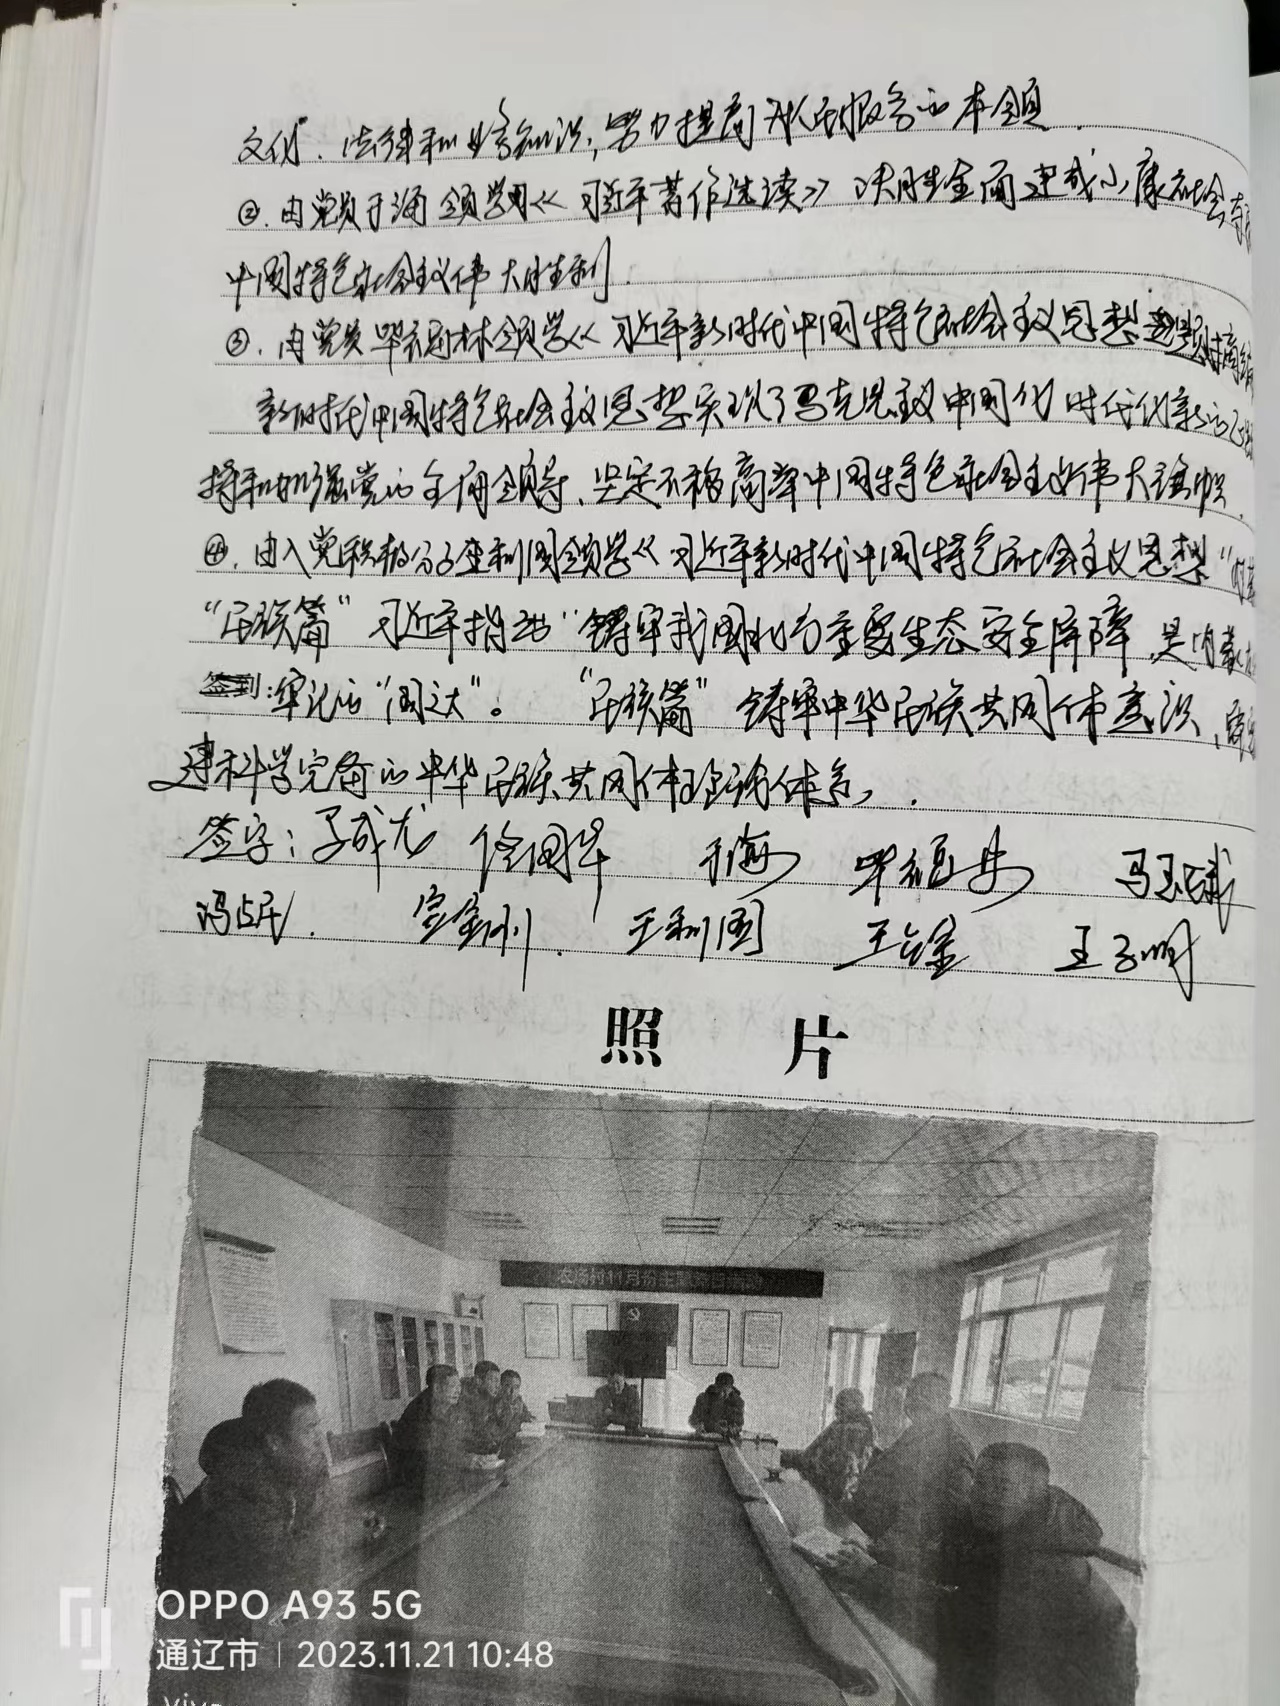 文化、法律和业务知识,努力提高为人民服务的本领.
②.由党员于海领学《习近平著作选读》决胜全面建成小康社会夺
中国特色社会主义伟大胜利.
③.由党员毕福林领学《习近平新时代中国特色社会主义思想
新时代中国特色社会主义思想实现了马克思主义中国化时代化新的
持和加强党的全面领导、坚定不移高举中国特色社会主义伟大旗帜.
④.由入党积极分子王利国领学《习近平新时代中国特色社会主义思想"
"民族篇"习近平指出"铸牢我国北方重要生态安全屏障,是内蒙古
签到:牢记的"国之大"。"民族篇"铸牢中华民族共同体意识,
建科学完备的中华民族共同体理论体系,.
签字:于海 毕福林 马玉斌
冯占民. 宝金刚 王利国 王金 王子明
照 片
农场村11月份主题党日活动
OPPO A93 5G
通辽市 | 2023.11.21 10:48
vivo